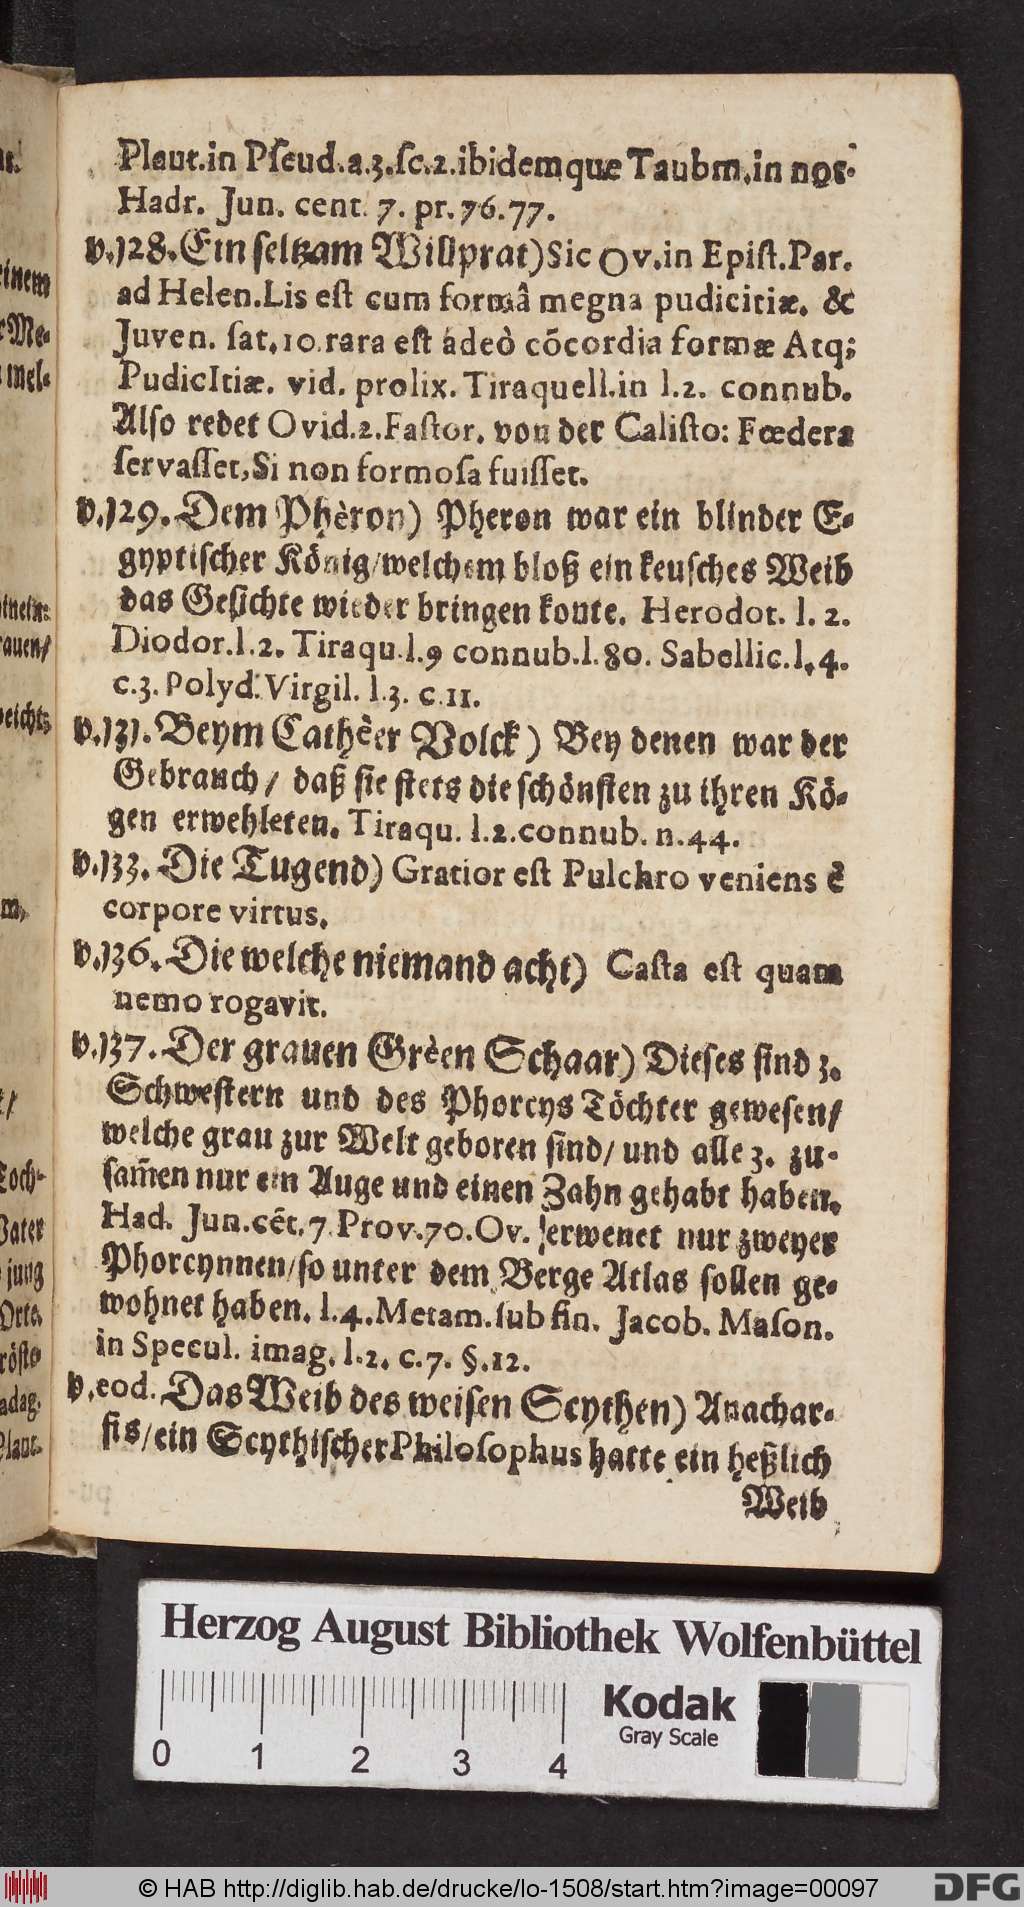 Plaut.in Pſeud.a.3.ſc.2.ibidemque Taubm.in not.
Hadr. Jun. cent. 7. pr.76.77.
v.128.Ein ſeltzam Willprat)Sic Ov.in Epiſt.Par.
ad Helen.Lis eſt cum formâ megna pudicitiæ. &
Juven. ſat.10.rara eſt adeò cõcordia formæ Atq;
PudicItiæ. vid. prolix. Tiraquell.in l.2. connub.
Alſo redet Ovid.2.Faſtor. von der Caliſto: Fœdera
ſervaſſet,Si non formoſa fuiſſet.
v.129. Dem Phèron) Pheron war ein blinder E-
gyptiſcher König/welchem bloß ein keuſches Weib
das Geſichte wieder bringen konte. Herodot. l. 2.
Diodor.l.2. Tiraqu.l.9 connub.l.80. Sabellic.l.4.
c.3. Polyd.Virgil. l.3. c.11.
v.131. Beym Cathèer Volck) Bey denen war der
Gebrauch/ daß ſie ſtets die ſchönſten zu ihren Kö-
gen erwehleten. Tiraqu. l.2.connub. n.44.
v.133. Die Tugend) Gratior eſt Pulchro veniens è
corpore virtus.
v.136. Die welche niemand acht) Caſta eſt quam
nemo rogavit.
v.137. Der grauen Grèen Schaar) Dieſes ſind 3.
Schweſtern und des Phorcys Töchter geweſen/
welche grau zur Welt geboren ſind/ und alle 3. zu-
ſam̃en nur ein Auge und einen Zahn gehabt haben.
Had. Jun.cẽt.7.Prov.70.Ov. erwenet nur zweyer
Phorcynnen/ſo unter dem Berge Atlas ſollen ge-
wohnet haben. l.4.Metam.ſub fin. Jacob. Maſon.
in Specul. imag. l.2. c.7. §.12.
v.eod. Das Weib des weiſen Scythen) Anachar-
ſis/ein Scythiſcher Philoſophus hatte ein heßlich
Weib
Herzog August Bibliothek Wolfenbüttel
0 1 2 3 4
Kodak
Gray Scale
© HAB http://diglib.hab.de/drucke/lo-1508/start.htm?image=00097
DFG